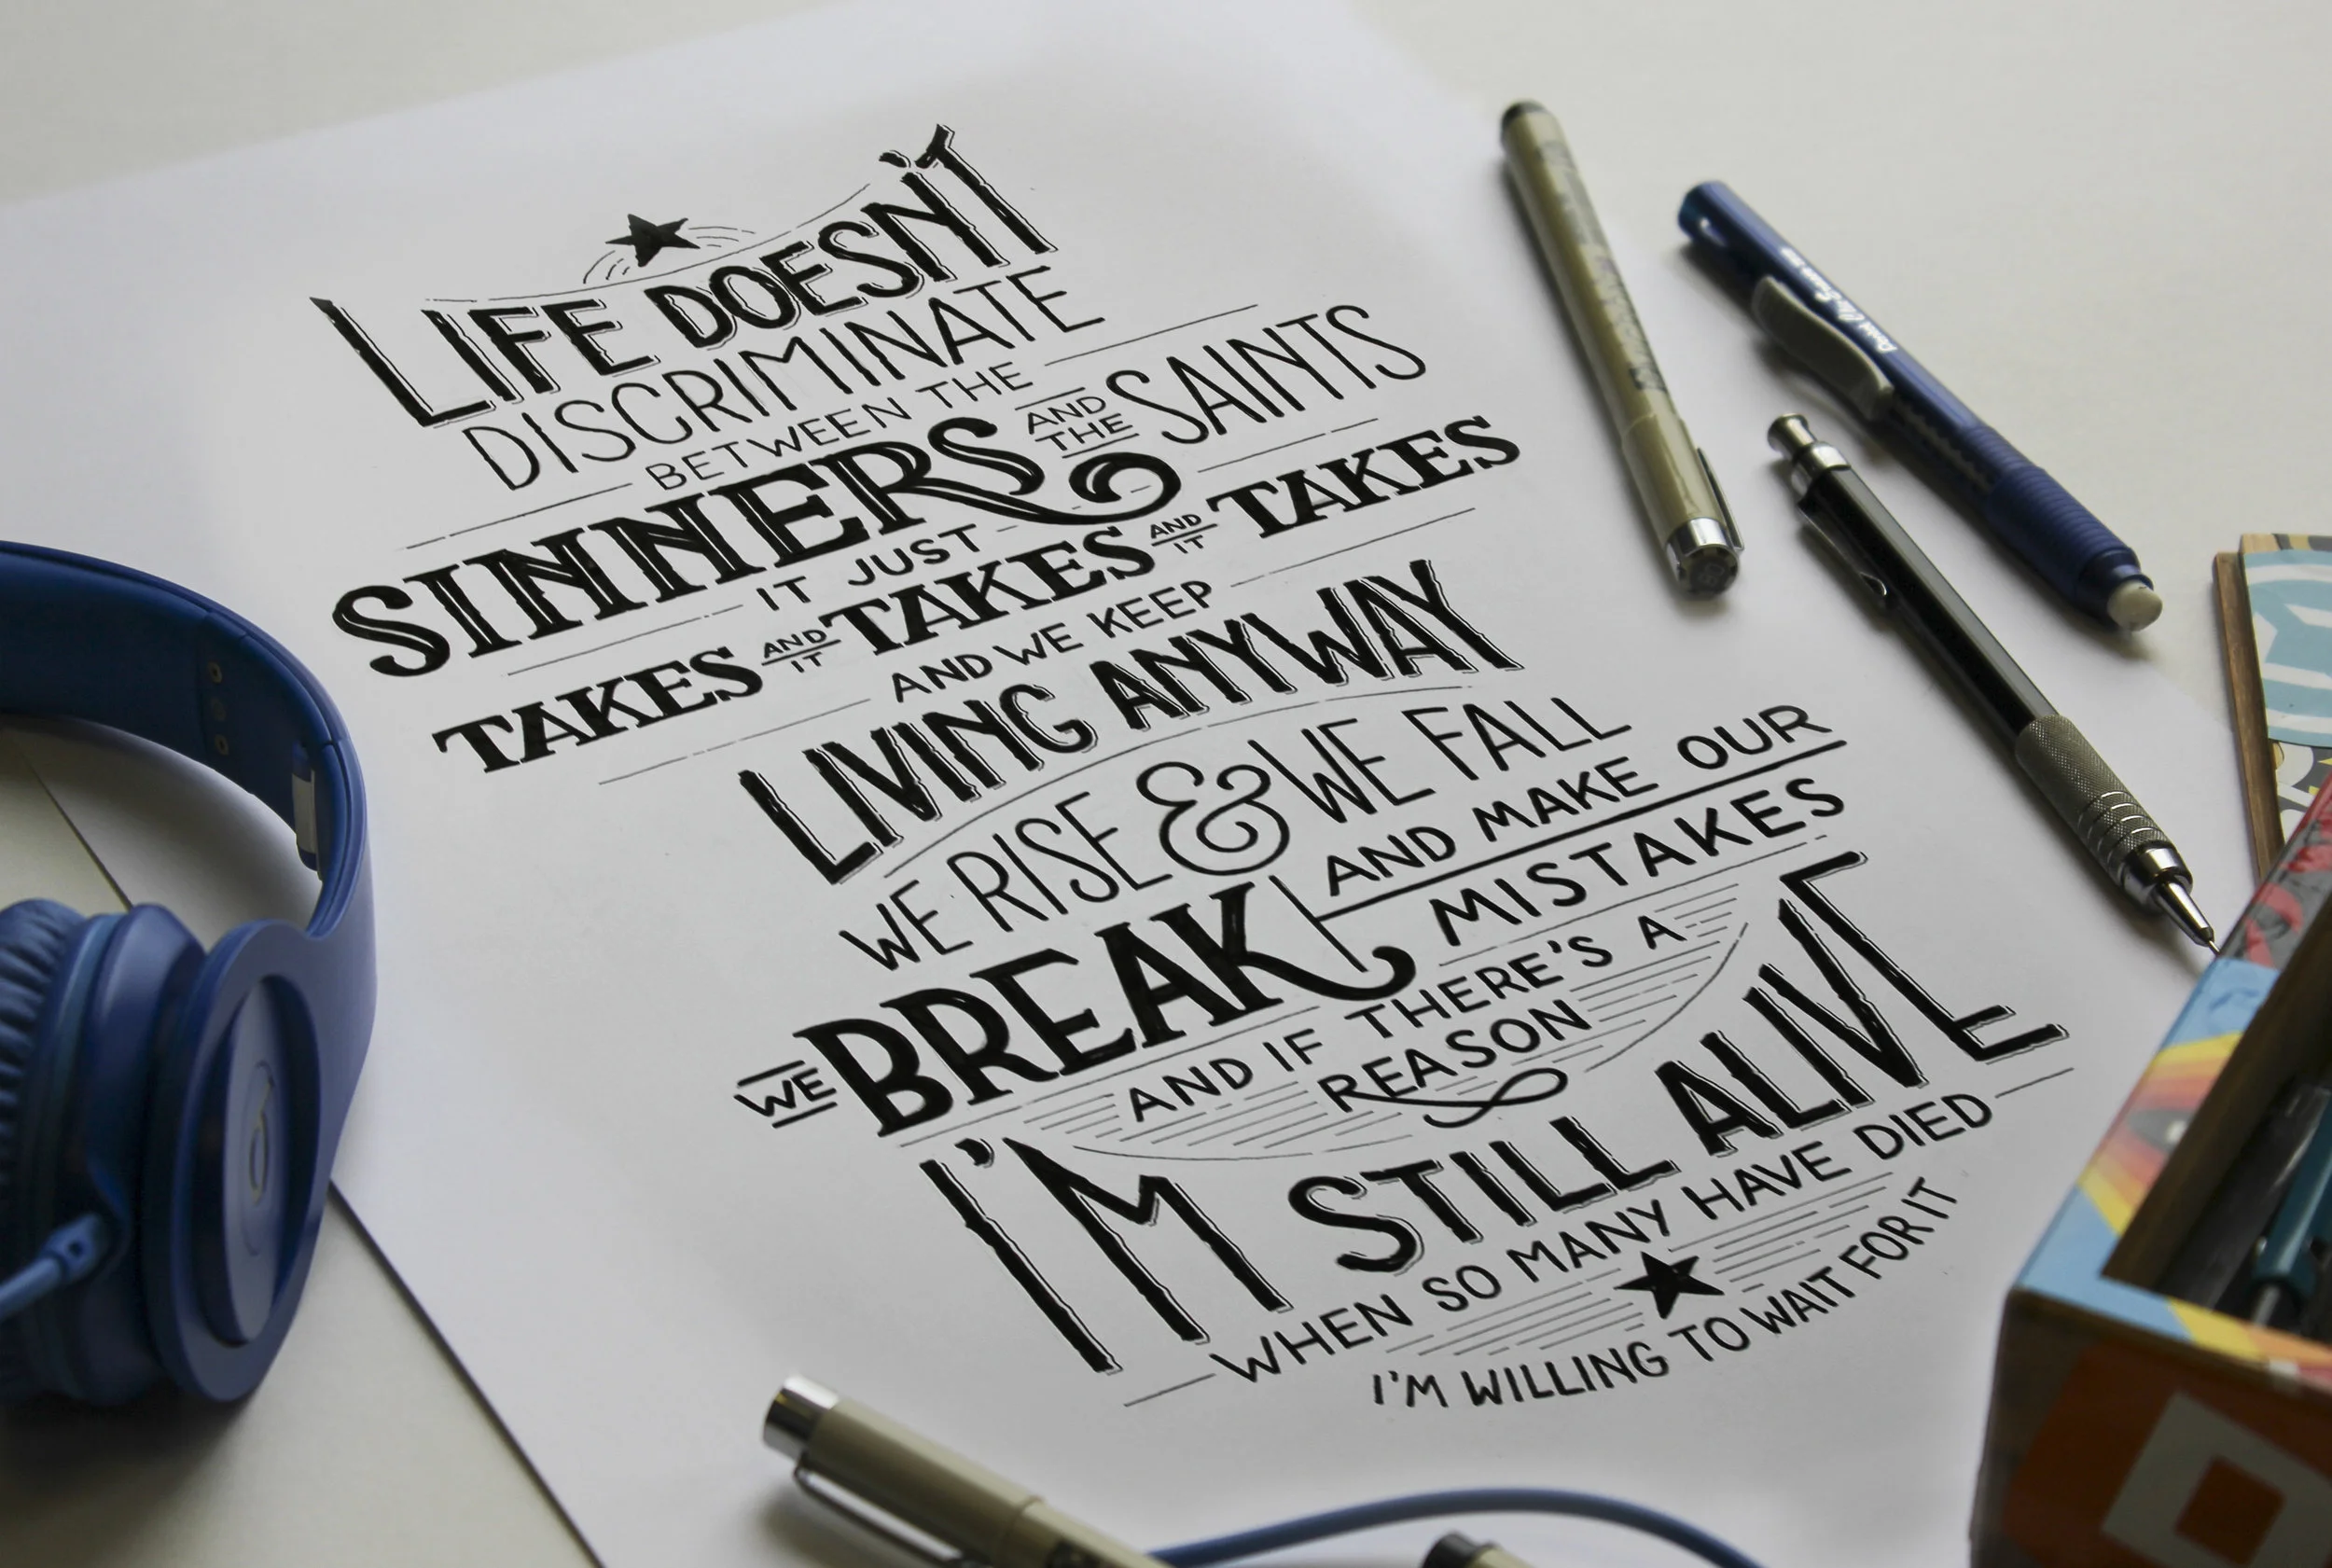 LIFE DOESN'T
DISCRIMINATE
BETWEEN THE
SINNERS AND THE SAINTS
IT JUST
TAKES AND IT TAKES AND IT TAKES
AND WE KEEP
LIVING ANYWAY
WE RISE & WE FALL
AND MAKE OUR
WE BREAK MISTAKES
AND IF THERE'S A
REASON
I'M STILL ALIVE
WHEN SO MANY HAVE DIED
I'M WILLING TO WAIT FOR IT